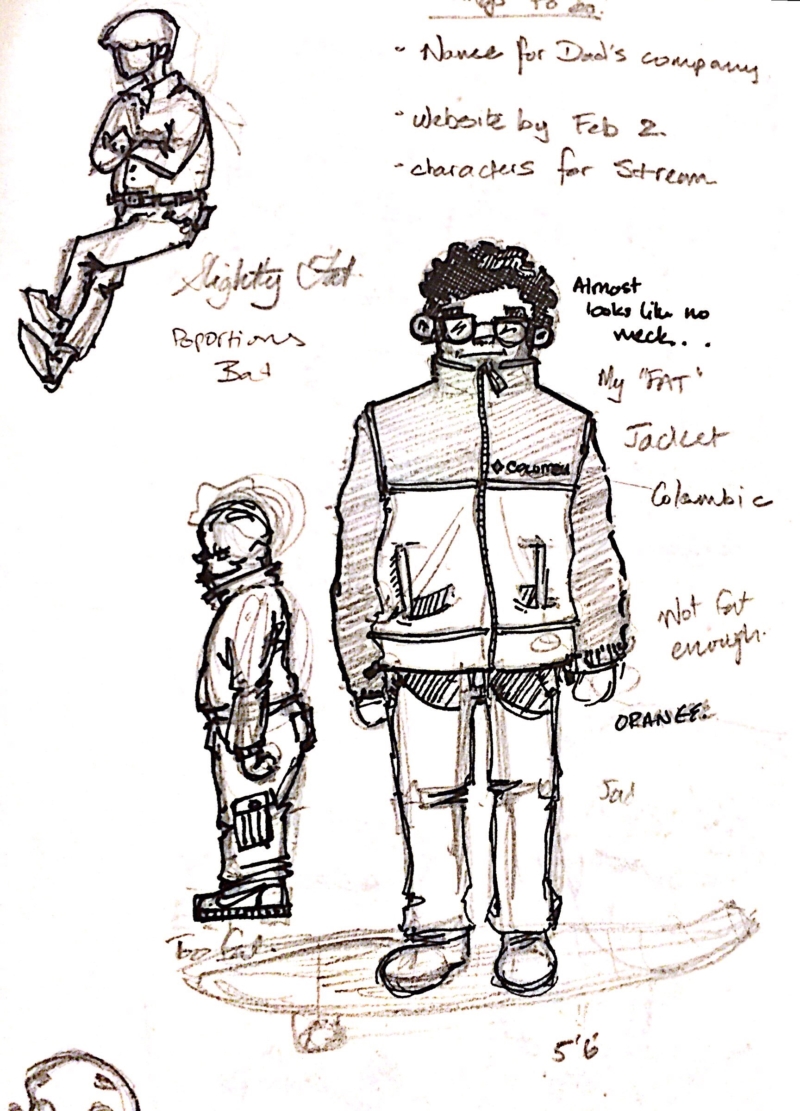 to do.
- Names for Dad's company
- Website by Feb 2.
- characters for Stream
Slightly Fat.
Poportions
Bad
Almost
looks like no
neck...
My "FAT"
Jacket
COLUMBIA
Columbia
Not fat
enough.
ORANGE.
Too Fat.
5'6